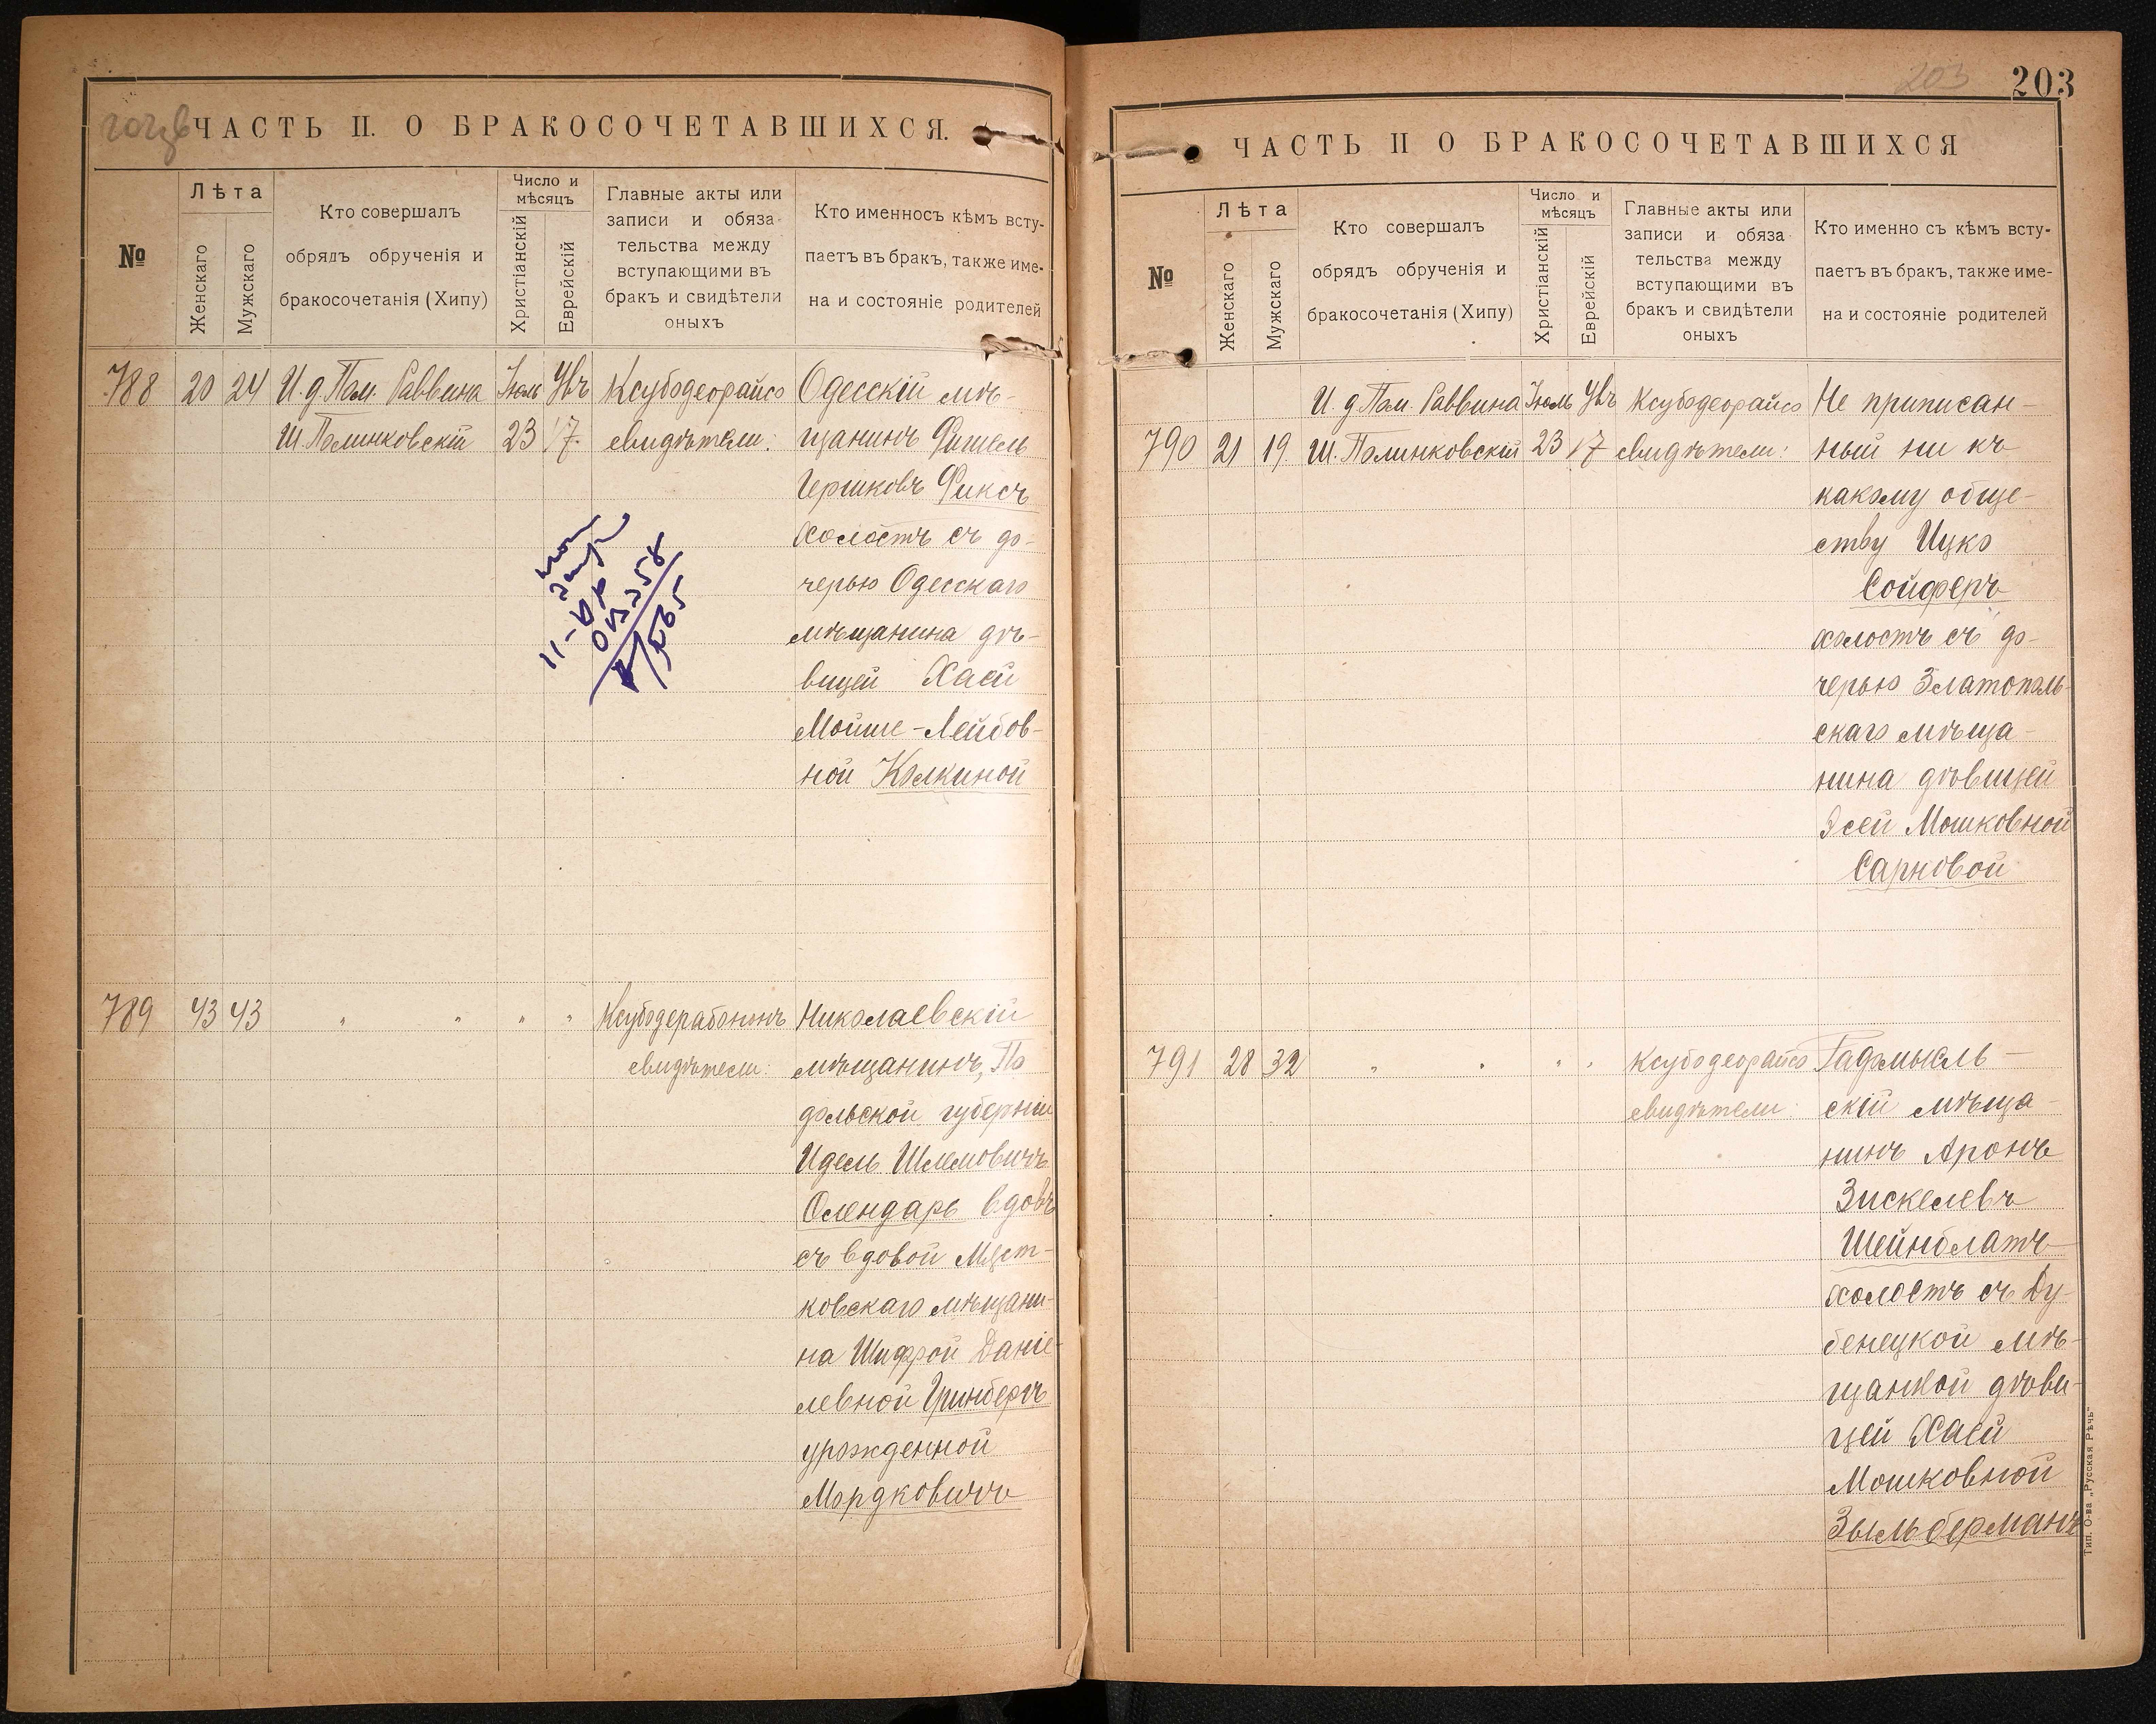 ЧАСТЬ II. О БРАКОСОЧЕТАВШИХСЯ.
№
Лѣта
Женскаго
Мужскаго
Кто совершалъ
обрядъ обрученія и
бракосочетанія (Хипу)
Число и
мѣсяцъ
Христіанскій
Еврейскій
Главные акты или
записи и обяза-
тельства между
вступающими въ
бракъ и свидѣтели
оныхъ
Кто именносъ кѣмъ всту-
паетъ въ бракъ, также име-
на и состояніе родителей
788 20 24 И. д. Пом. Раввина Іюль Увъ Ксубодеорайсо Одесскій мѣ-
Ш. Полинковскій 23 17 свидѣтели: щанинъ Фишель
Гершковъ Фиксъ
холостъ съ до-
черью Одесскаго
мѣщанина дѣ-
вицей Хаей
Мойше-Лейбов-
ной Колкиной
789 43 43 " " " " Ксубодерабононъ Николаевскій
свидѣтели: мѣщанинъ, По
дольской губерніи
Идель Шлемовичъ
Олендарь вдовъ
съ вдовой Мяст-
ковскаго мѣщани-
на Шифрой Даніе-
левной Гринбергъ
урожденной
Мордковичъ
203
203
ЧАСТЬ II О БРАКОСОЧЕТАВШИХСЯ
№
Лѣта
Женскаго
Мужскаго
Кто совершалъ
обрядъ обрученія и
бракосочетанія (Хипу)
Число и
мѣсяцъ
Христіанскій
Еврейскій
Главные акты или
записи и обяза
тельства между
вступающими въ
бракъ и свидѣтели
оныхъ
Кто именно съ кѣмъ всту-
паетъ въ бракъ, также име-
на и состояніе родителей
И. д Пом. Раввина Іюль Увъ Ксубодеорайсо Не приписан-
790 21 19 Ш. Полинковскій 23 17 свидѣтели: ный ни къ
какому обще-
ству Ицко
Сойферъ
холостъ съ до-
черью Златополь-
скаго мѣща-
нина дѣвицей
Эсей Мошковной
Сарновой
791 28 32 " " " " Ксубодеорайсо Радомысль-
свидѣтели: скій мѣща-
нинъ Аронъ
Зискелевъ
Шейнблатъ
холостъ съ Ду-
бенецкой мѣ-
щанкой дѣви-
цей Хаей
Мошковной
Зыльберманъ
Тип. О-ва „Русская Рѣчь"